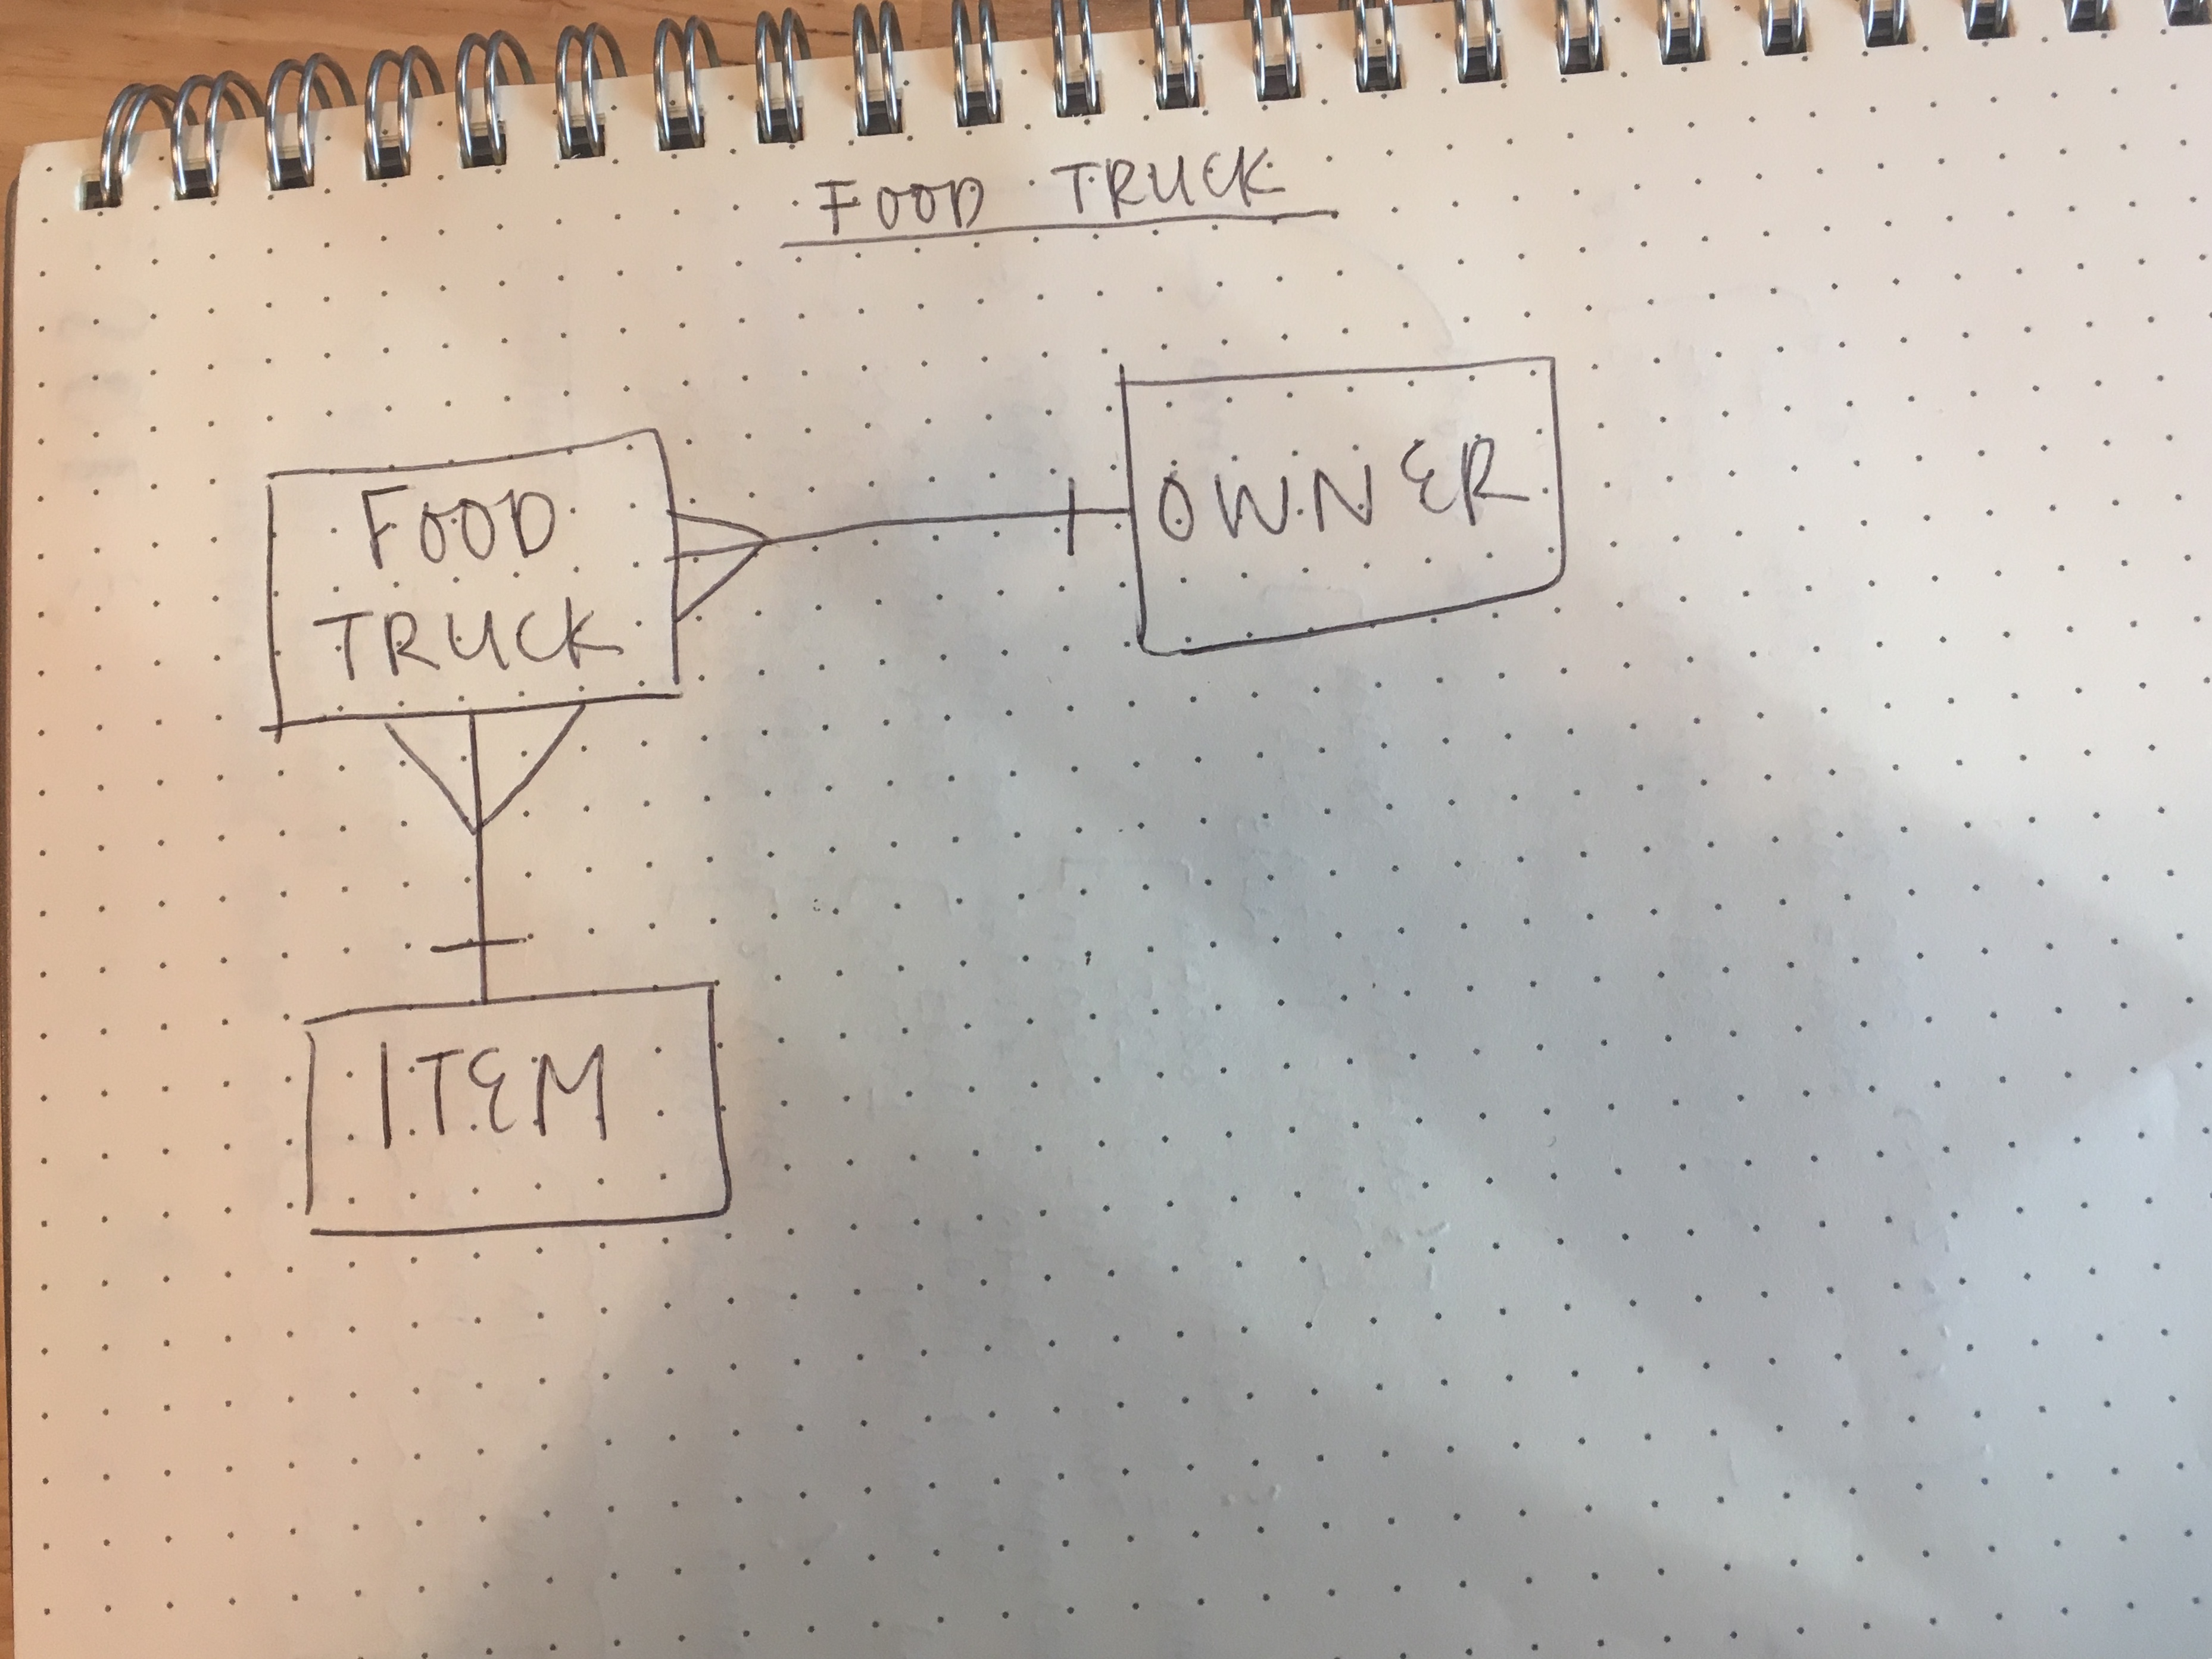 FOOD TRUCK
FOOD
TRUCK
OWNER
ITEM